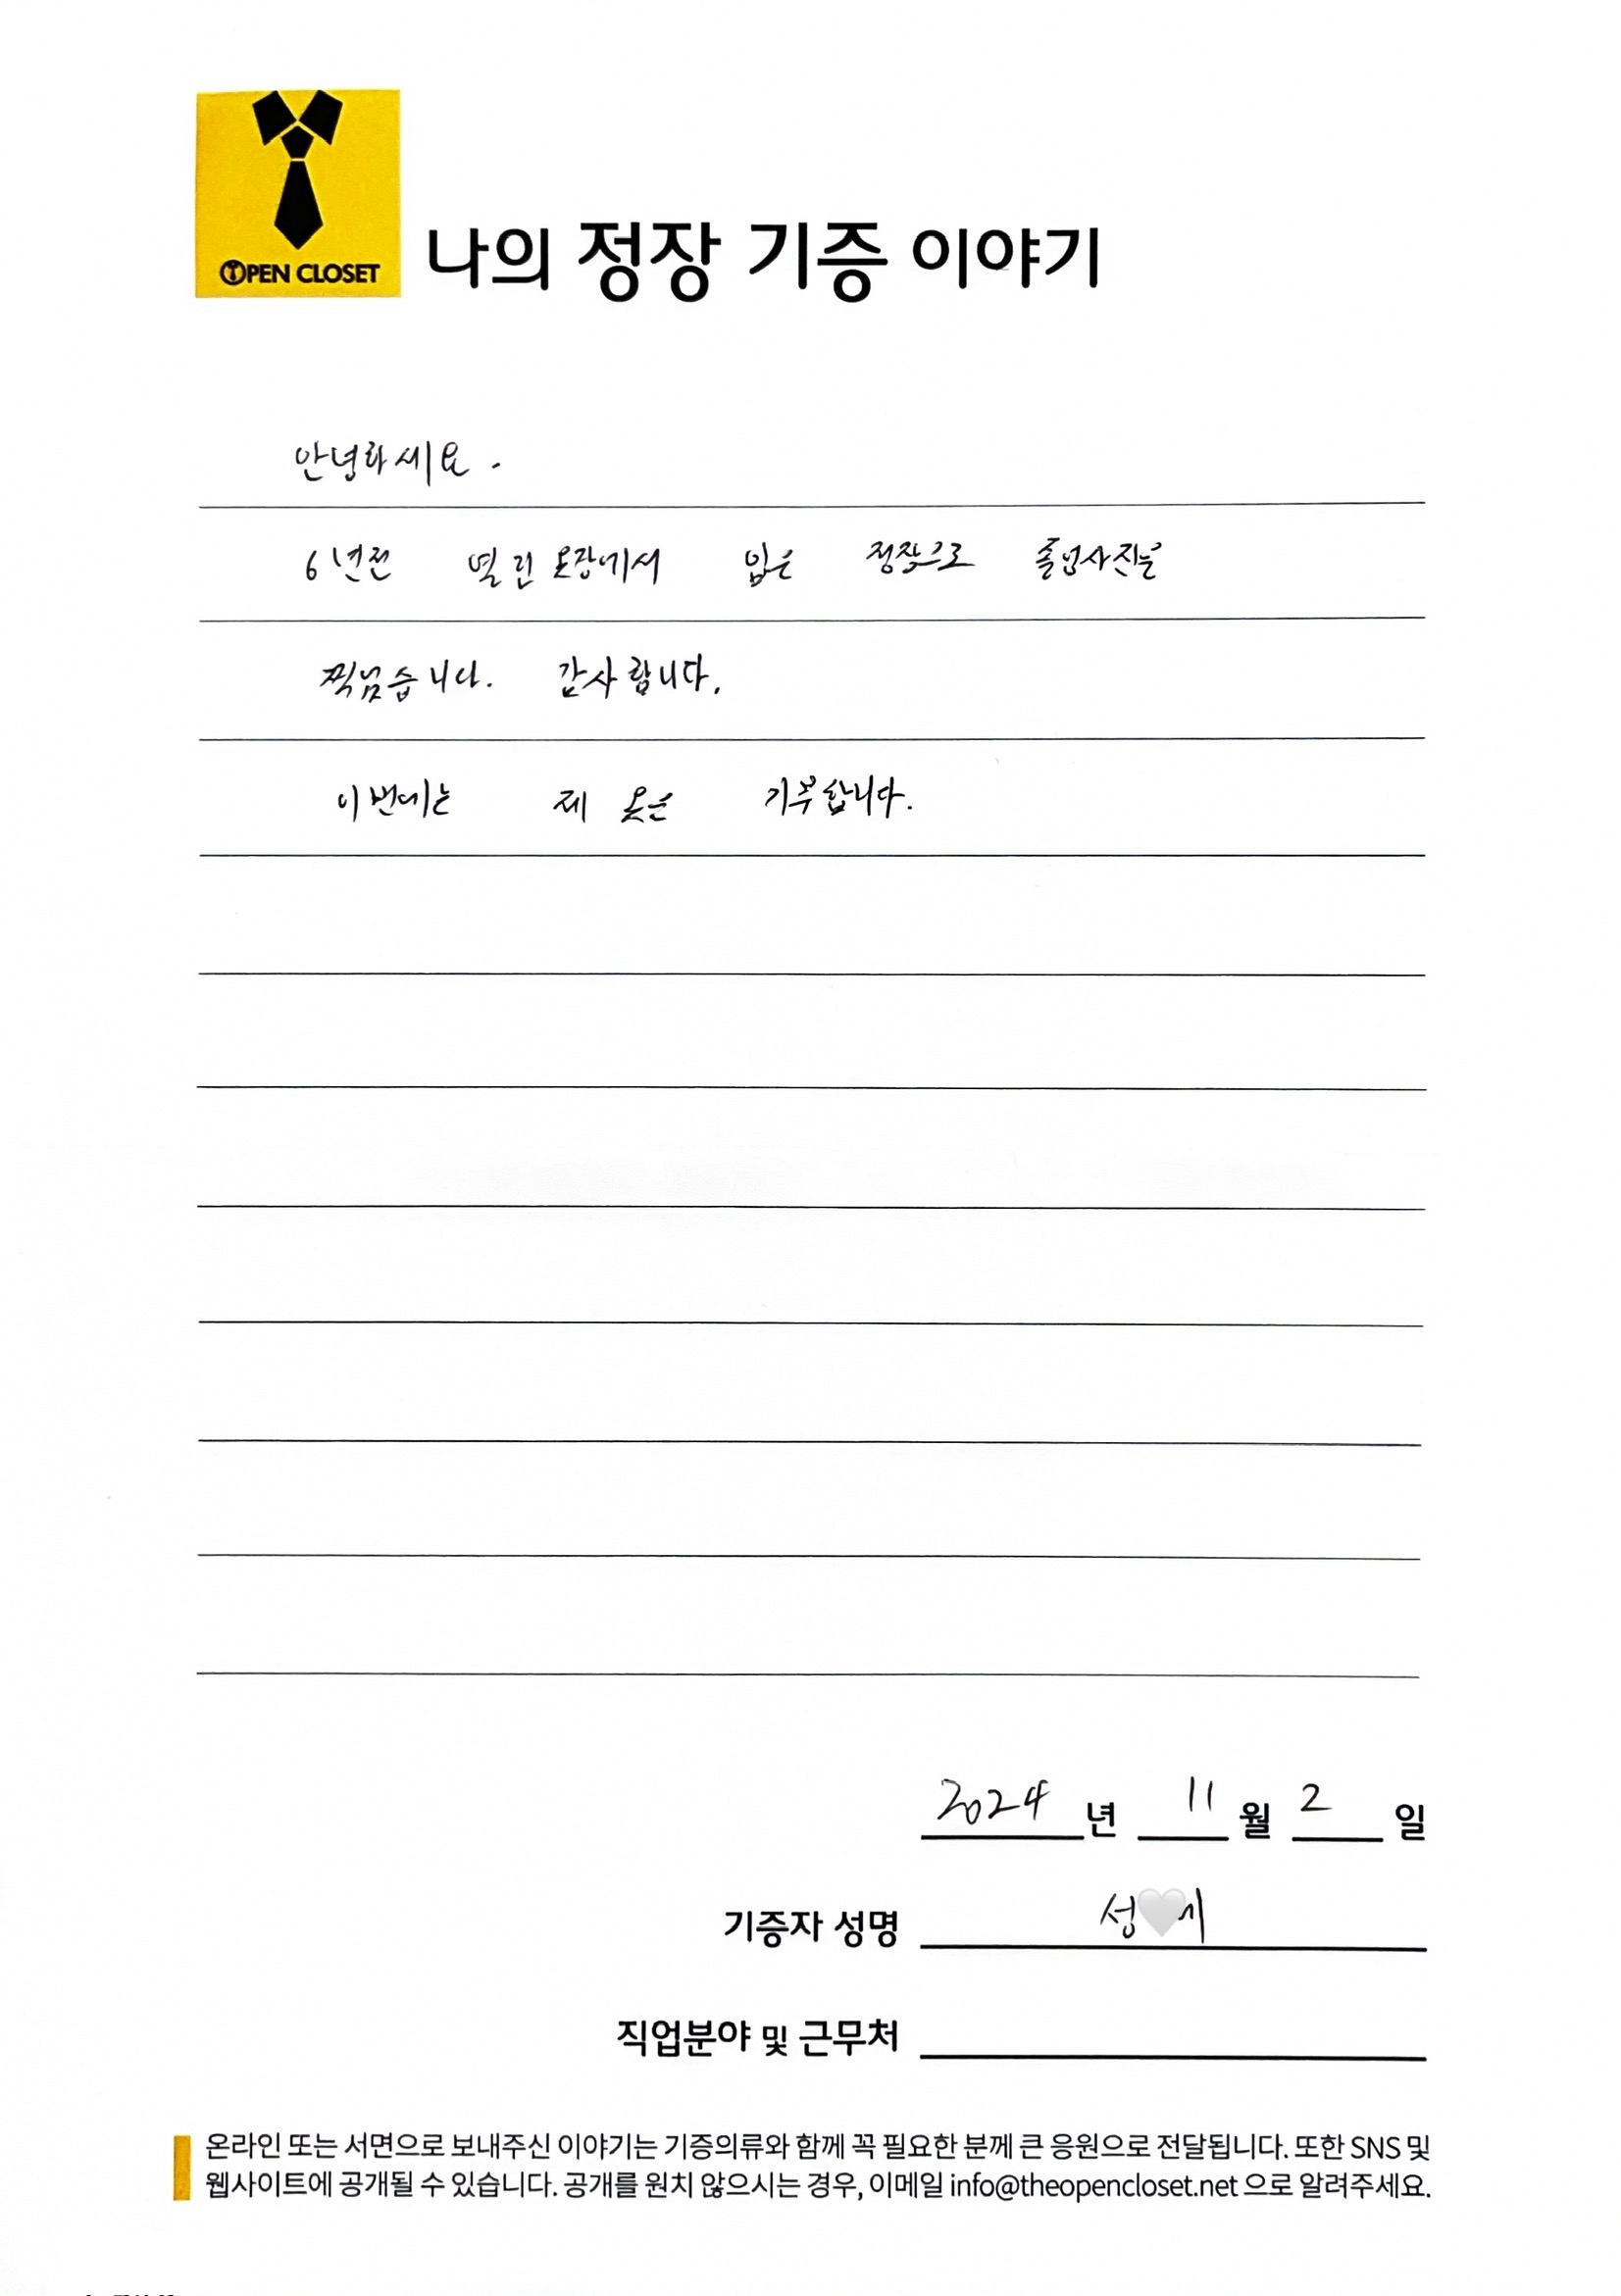 OPEN CLOSET
나의 정장 기증 이야기
안녕하세요.
6년전 열린옷장에서 입은 정장으로 졸업사진을
찍었습니다. 감사합니다.
이번에는 제 옷을 기부합니다.
2024 년 11 월 2 일
기증자 성명 성
직업분야 및 근무처
온라인 또는 서면으로 보내주신 이야기는 기증의류와 함께 꼭 필요한 분께 큰 응원으로 전달됩니다. 또한 SNS 및
웹사이트에 공개될 수 있습니다. 공개를 원치 않으시는 경우, 이메일 info@theopencloset.net 으로 알려주세요.